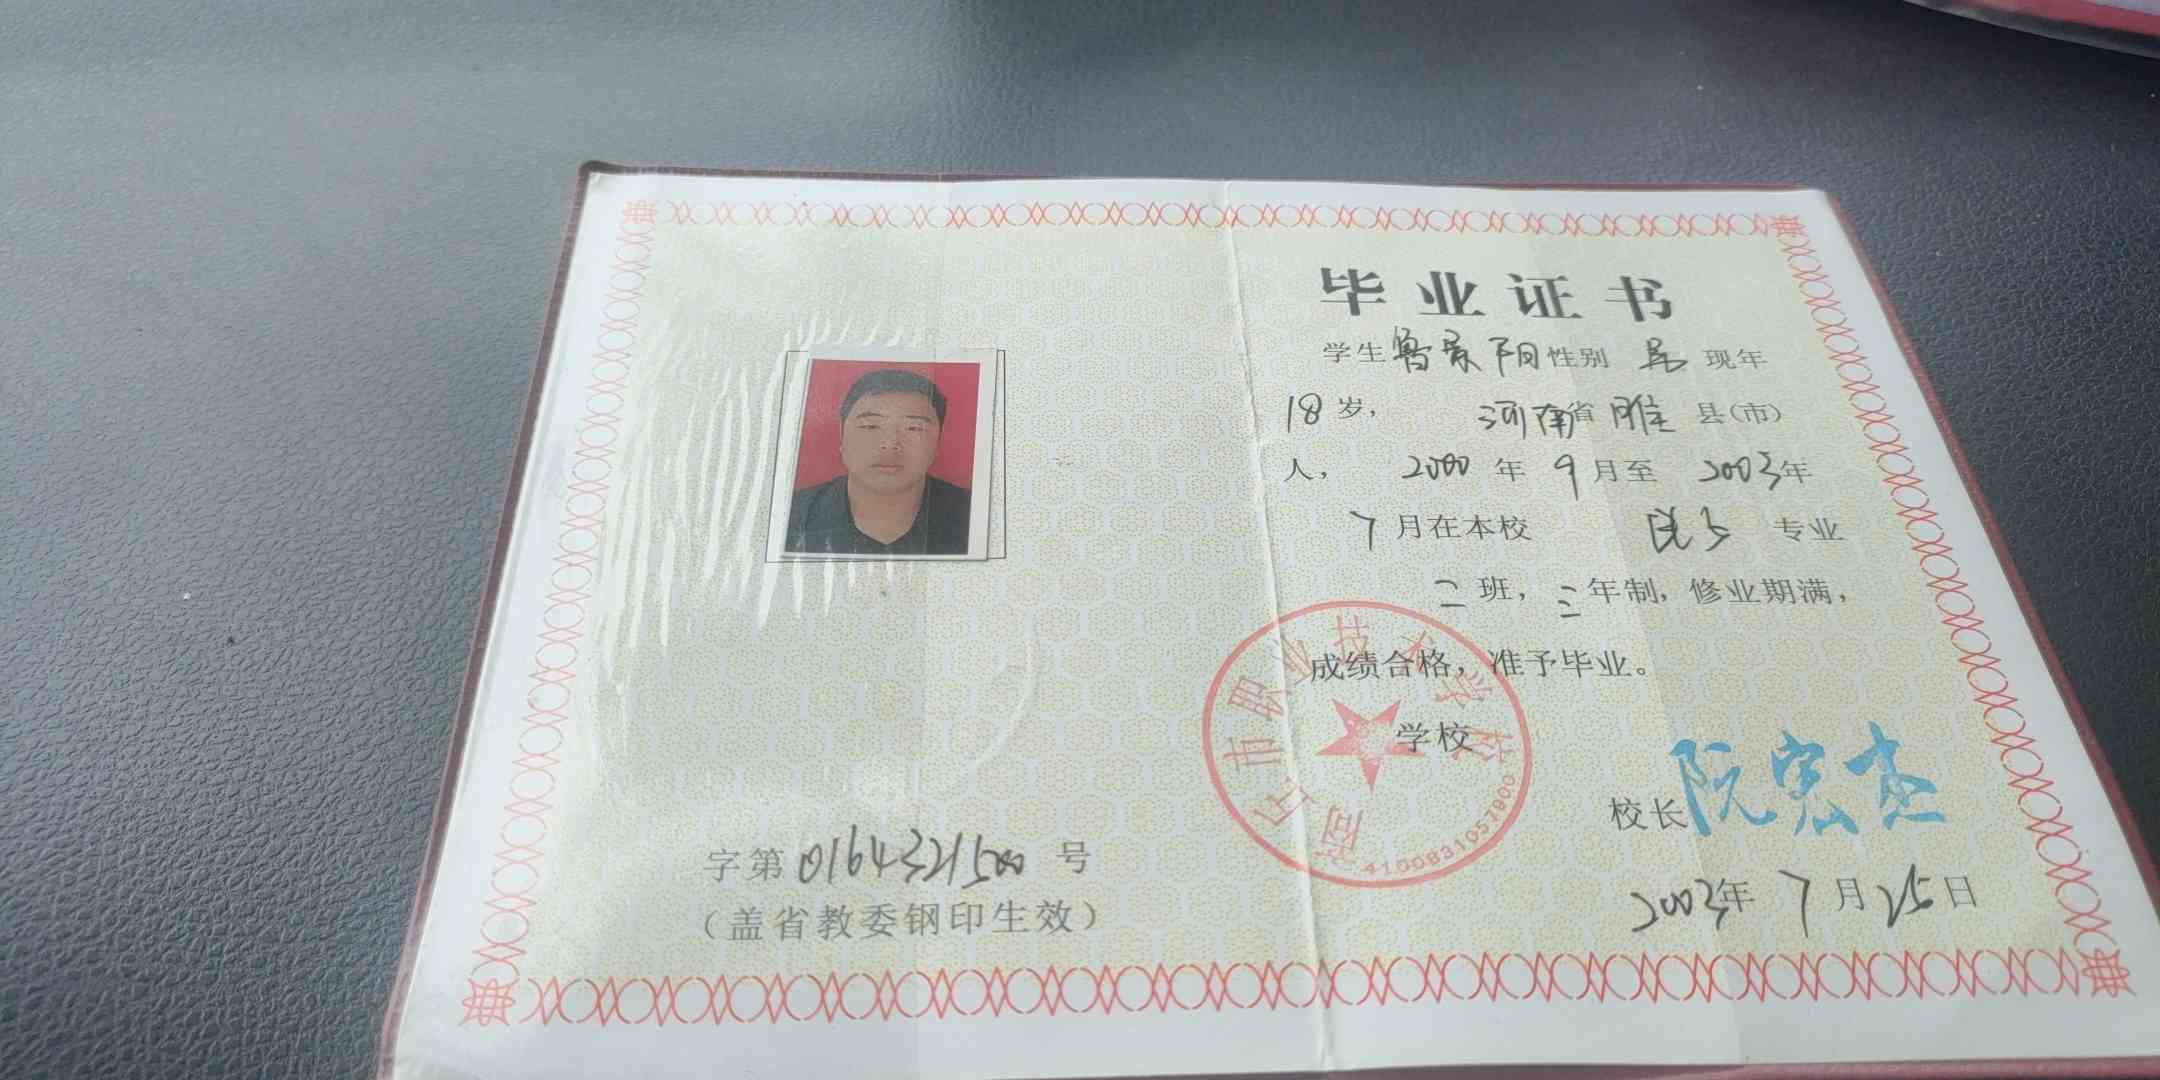 字第0164321500号
（盖省教委钢印生效）
毕业证书
学生鲁景阳性别男现年
18岁，河南省睢县（市）
人，2000年9月至2003年
7月在本校 专业
二班，三年制，修业期满，
成绩合格，准予毕业。
学校
商丘市职业技术学校
4100831057900
校长阮宏杰
2003年7月25日